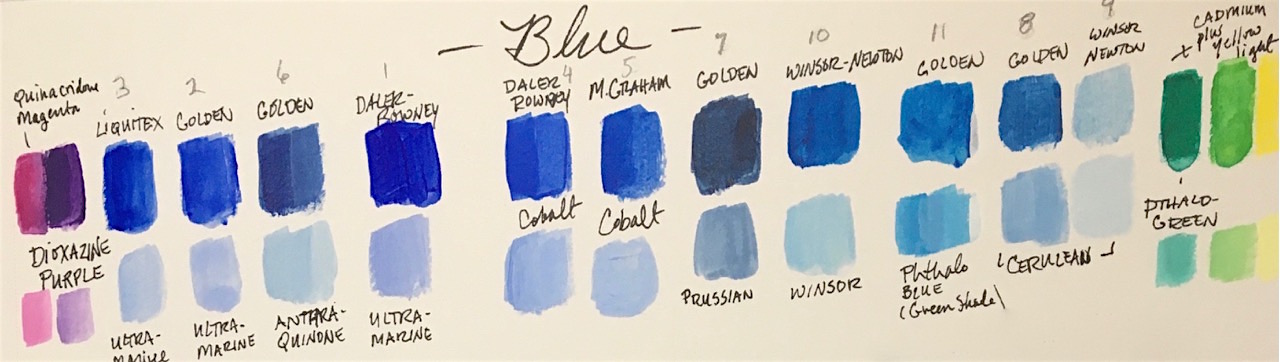 - Blue -
Quinacridone
Magenta
3
LIQUITEX
2
GOLDEN
6
GOLDEN
1
DALER-
ROWNEY
DALER 4
ROWNEY
5
M.GRAHAM
7
GOLDEN
10
WINSOR-NEWTON
11
GOLDEN
8
GOLDEN
9
WINSOR
NEWTON
+
CADMIUM
plus
yellow
light
DIOXAZINE
PURPLE
ULTRA-
MARINE
ULTRA-
MARINE
ANTHRA-
QUINONE
ULTRA-
MARINE
Cobalt
Cobalt
PRUSSIAN
WINSOR
Phthalo
BLUE
(Green Shade)
CERULEAN
PTHALO-
GREEN